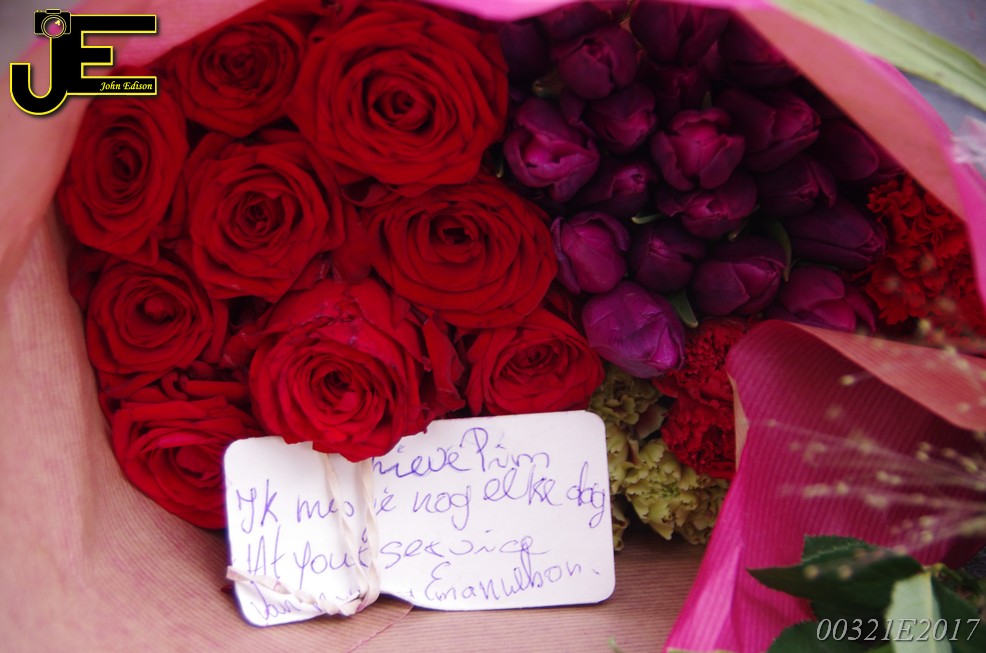 JE
John Edison
Pim
Ik nog elke dag
At your service
Van Emanuelbon.
00321E2017